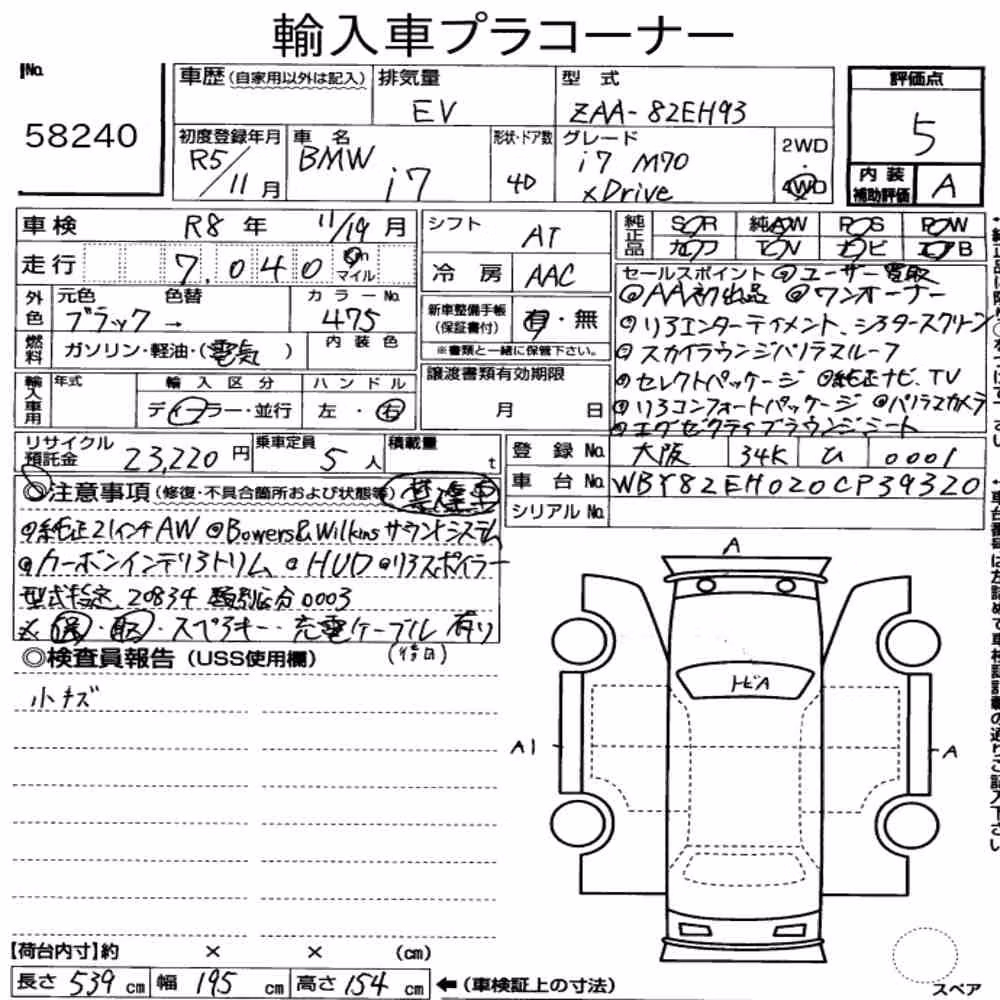 輸入車プラコーナー
No.
58240
車歴(自家用以外は記入)
排気量
EV
型 式
ZAA-82EH93
評価点
5
内装補助評価
A
初度登録年月
R5/11月
車 名
BMW i7
形状・ドア数
4D
グレード
i7 M70
xDrive
2WD
・
4WD
車検 R8年 11/19月
走行 7,040 Km
マイル
シフト AT
冷 房 AAC
純正品
S・R 純AW P・S P・W
カワ T・V ナビ エアB
外色
元色 色替 カラーNo.
ブラック → 475
燃料
ガソリン・軽油・(電気)
内 装 色
新車整備手帳
(保証書付)
有・無
※書類と一緒に保管下さい。
輸入車用
年式
輸 入 区 分
ディーラー・並行
ハ ン ド ル
左・右
譲渡書類有効期限
月 日
セールスポイント ◎ユーザー買取
◎AA初出品 ◎ワンオーナー
◎リアエンターテイメント、シアタースクリーン
◎スカイラウンジパノラマルーフ
◎セレクトパッケージ ◎純正ナビ、TV
◎リアコンフォートパッケージ ◎パノラマカメラ
◎エグゼクティブラウンジシート
リサイクル預託金 23,220円
乗車定員 5人
積載量 t
登 録 No. 大阪 34K ひ 0001
車 台 No. WBY82EH020CP39320
シリアルNo.
◎注意事項(修復・不具合箇所および状態等)
◎純正21インチAW ◎Bowers&Wilkinsサウンドシステム
◎カーボンインテリアトリム ◎HUD ◎リアスポイラー
型式指定 20834 類別区分 0003
※ 保・取・スペアキー・充電ケーブル有り
(後日)
◎検査員報告(USS使用欄)
小キズ
A
トビA
A1
A
【荷台内寸】約 × × (cm)
長さ 539 cm 幅 195 cm 高さ 154 cm
←(車検証上の寸法)
スペア